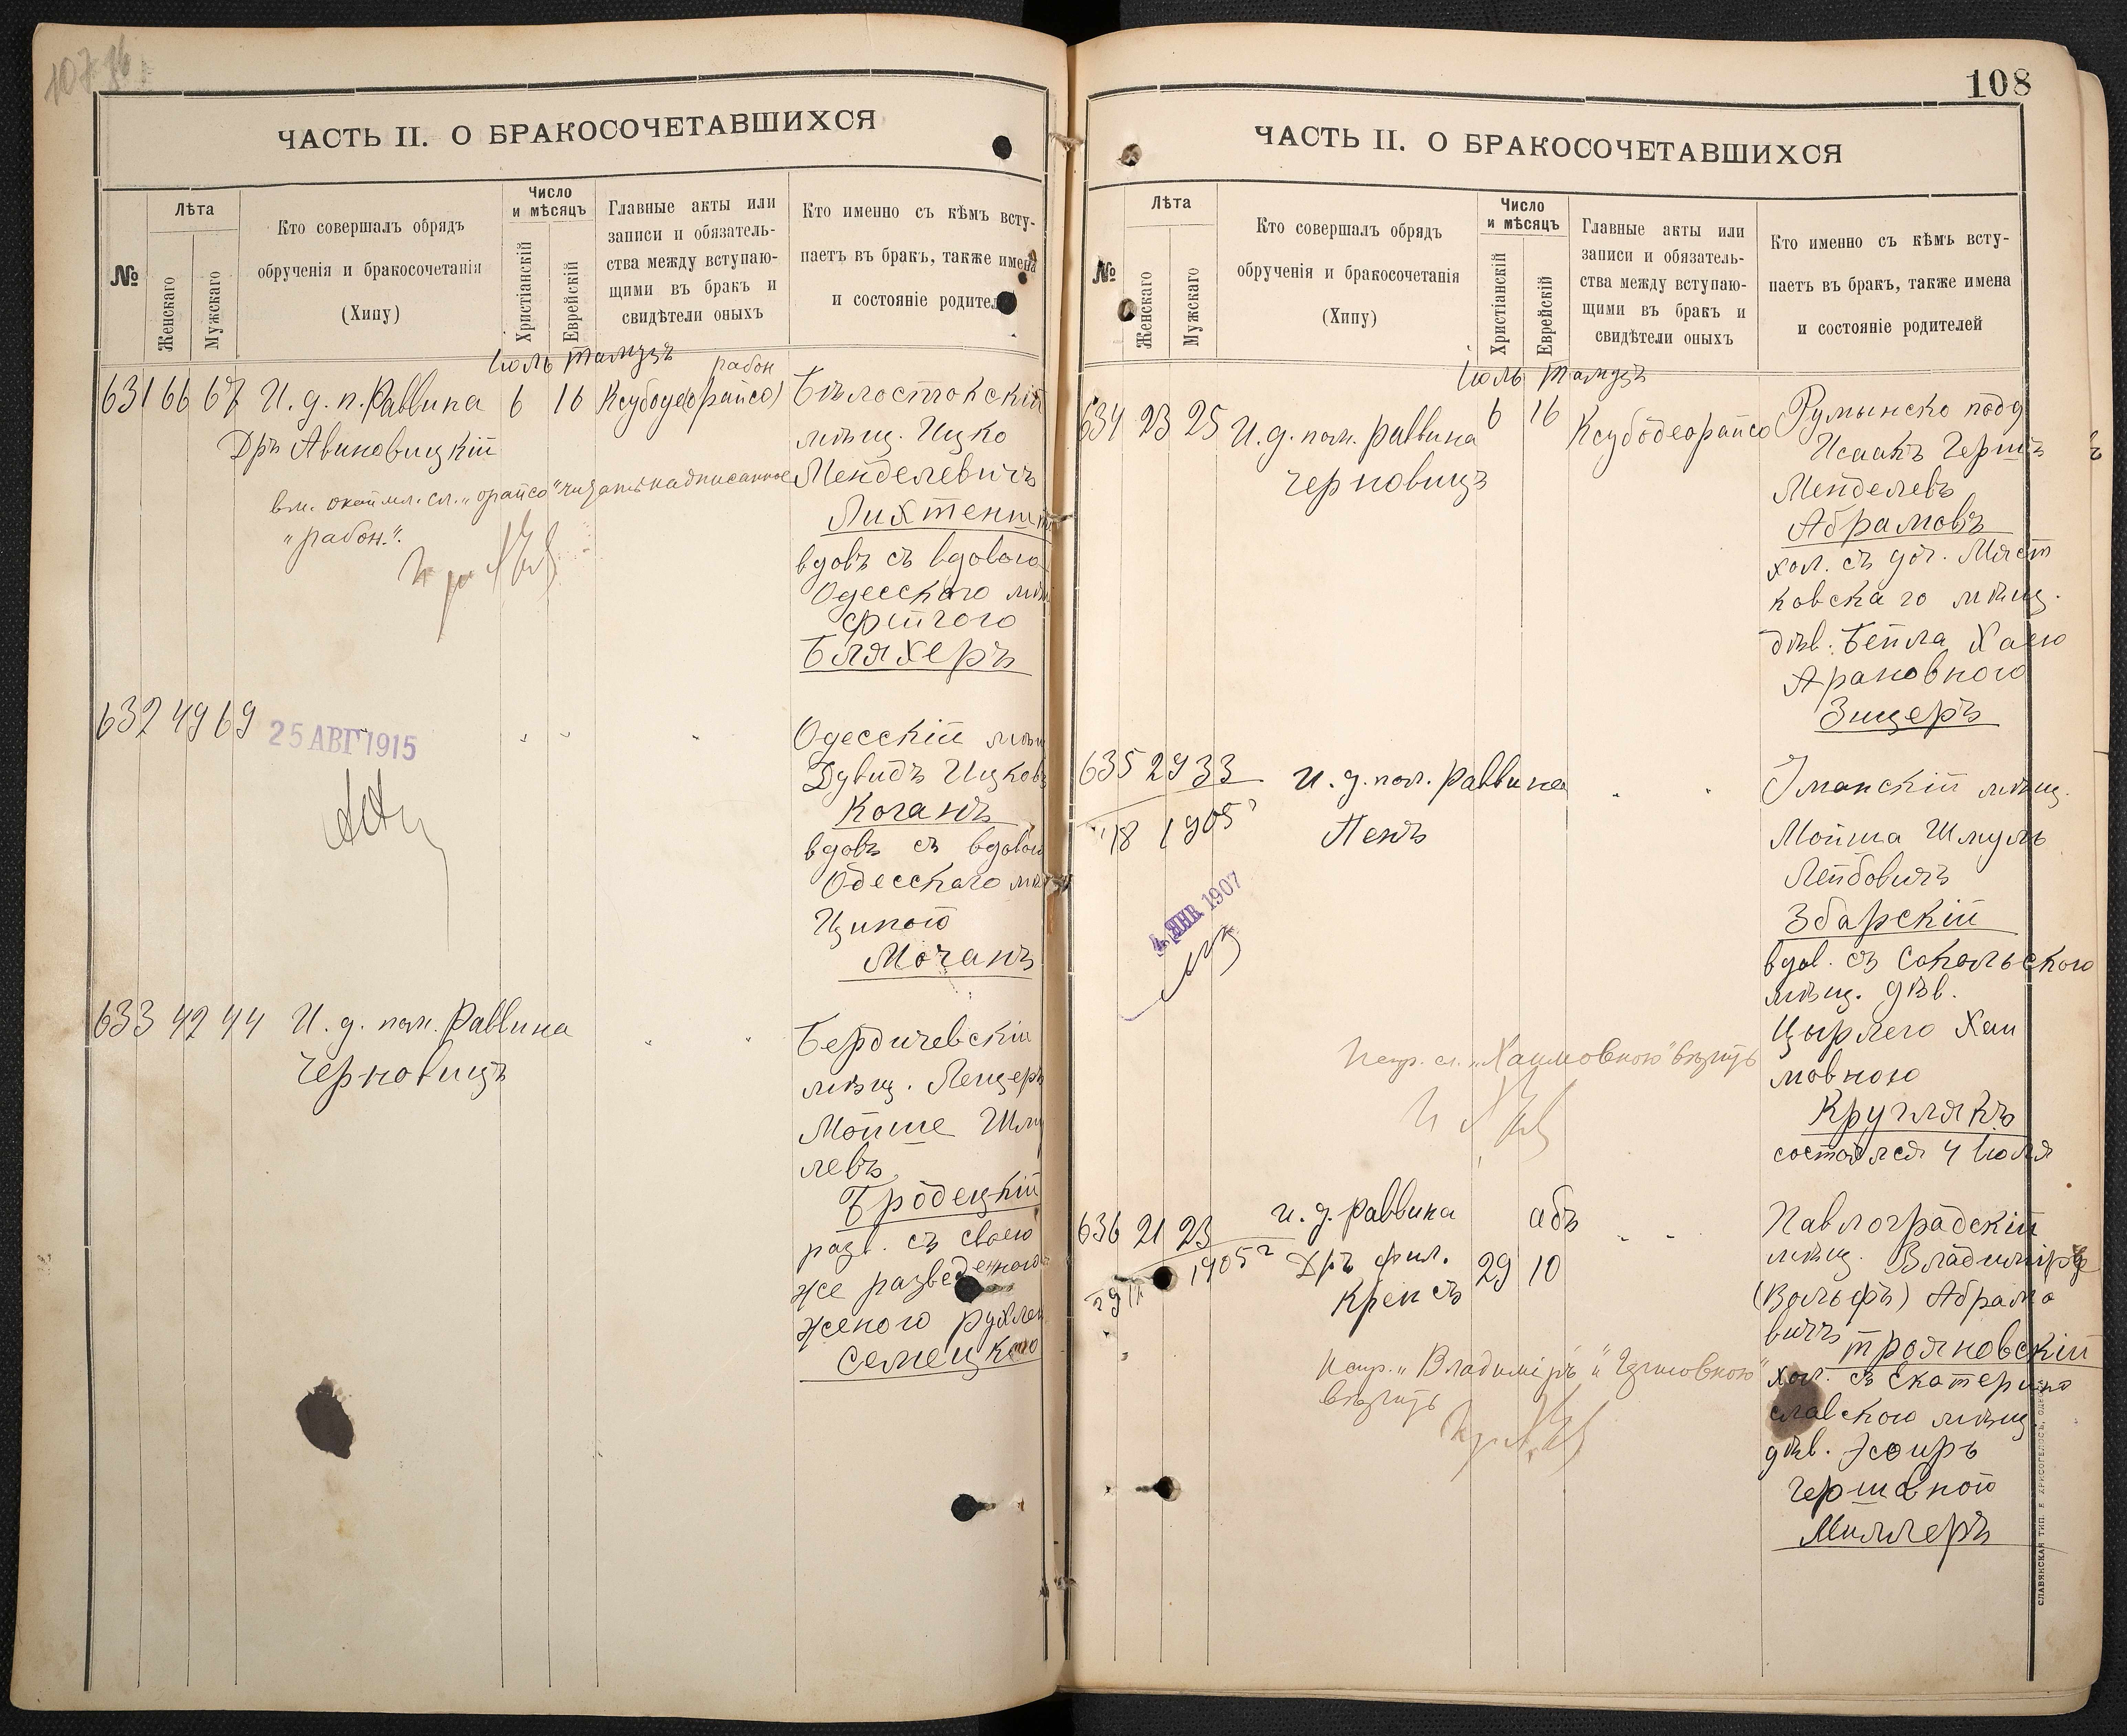 ЧАСТЬ II. О БРАКОСОЧЕТАВШИХСЯ
№
Лѣта
Женскаго
Мужскаго
Кто совершалъ обрядъ
обрученія и бракосочетанія
(Хипу)
Число
и мѣсяцъ
Христіанскій
Еврейскій
Главные акты или
записи и обязатель-
ства между вступаю-
щими въ бракъ и
свидѣтели оныхъ
Кто именно съ кѣмъ всту-
паетъ въ бракъ, также имена
и состояніе родител
Іюль Тамузъ
рабон
631 66 67 И. д. п. Раввина 6 16 Ксубоде(орайсо)
Дръ Авиновицкій
вм. окаймл. сл. „орайсо" читать надписанное
„рабон.".
Бѣлостокскій
мѣщ. Ицко
Менделевичъ
Лихтенштн
вдовъ съ вдовою
Одесскаго мѣщ
Фейгою
Бляхеръ
632 49 69
25 АВГ 1915
Одесскій мѣщ
Дувидъ Ицковъ
Коганъ
вдовъ съ вдовою
Одесскаго мѣщ
Ципою
Моганъ
633 42 44 И. д. пом. Раввина
Черновицъ
Бердичевскій
мѣщ. Лейзеръ
Мойше Шму
левъ
Бродецкій
разв. съ своею
же разведенною
женою Рухлею
Семецкою
108
ЧАСТЬ II. О БРАКОСОЧЕТАВШИХСЯ
№
Лѣта
Женскаго
Мужскаго
Кто совершалъ обрядъ
обрученія и бракосочетанія
(Хипу)
Число
и мѣсяцъ
Христіанскій
Еврейскій
Главные акты или
записи и обязатель-
ства между вступаю-
щими въ бракъ и
свидѣтели оныхъ
Кто именно съ кѣмъ всту-
паетъ въ бракъ, также имена
и состояніе родителей
Іюль Тамузъ
634 23 25 И. д. пом. раввина 6 16 Ксубодеорайсо
Черновицъ
Румынско подд
Исаакъ Гершъ
Менделевъ
Абрамовъ
хол. съ доч. Мяст
ковскаго мѣщ.
дѣв. Бейла Хаею
Арановною
Зицеръ
635 29 33 И. д. пом. раввина
18 1905 Пенъ
4 ЯНВ. 1907
Испр. сл. „Хаимовною" вѣрить
Уманскій мѣщ.
Мойша Шмуль
Лейбовичъ
Збарскій
вдов. съ Сокольскою
мѣщ. дѣв.
Цырлею Хаи
мовною
Круглякъ
состоялся 4 Іюля
636 21 23 И. д. раввина абъ
1905 Дръ фил. 29 10
Крепсъ
Испр. „Владиміръ" и „Гершовною"
вѣрить
Павлоградскій
мѣщ. Владиміръ
(Вольфъ) Абрамо
вичъ Трояновскій
хол. съ Екатерино
славскою мѣщ.
дѣв. Эсѳирь
Гершовною
Миллеръ
СЛАВЯНСКАЯ ТИП. Е. ХРИСОГЕЛОСЪ, ОДЕ